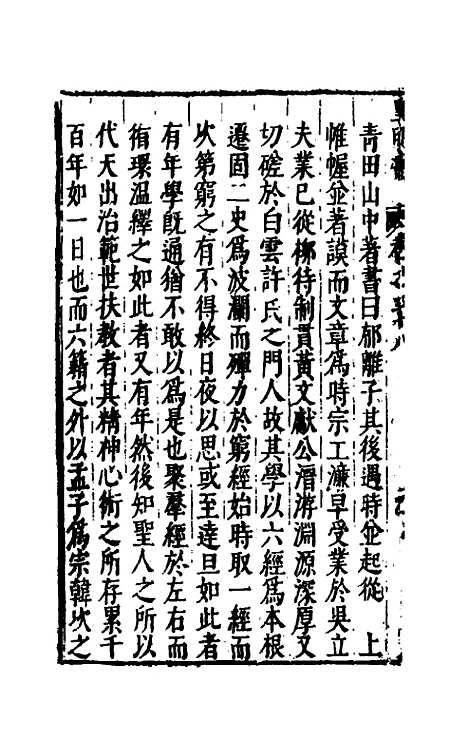 青田山中著書曰郁離子其後遇時並起從　上
帷幄並著謨而文章爲時宗工濂早受業於吳立
夫業已從柳待制貫黃文獻公溍游淵源深厚又
切磋於白雲許氏之門人故其學以六經爲本根
遷固二史爲波瀾而殫力於窮經始時取一經而
次第窮之有不得終日夜以思或至達旦如此者
有年學旣通猶不敢以爲是也聚羣經於左右而
循環温繹之如此者又有年然後知聖人之所以
代天出治範世扶教者其精神心術之所存累千
百年如一日也而六籍之外以孟子爲宗韓次之